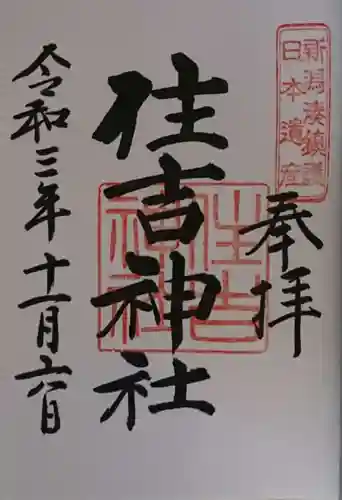 新潟湊鎮護
日本遺産
奉拝
住吉神社
住吉
神社
令和三年十一月六日